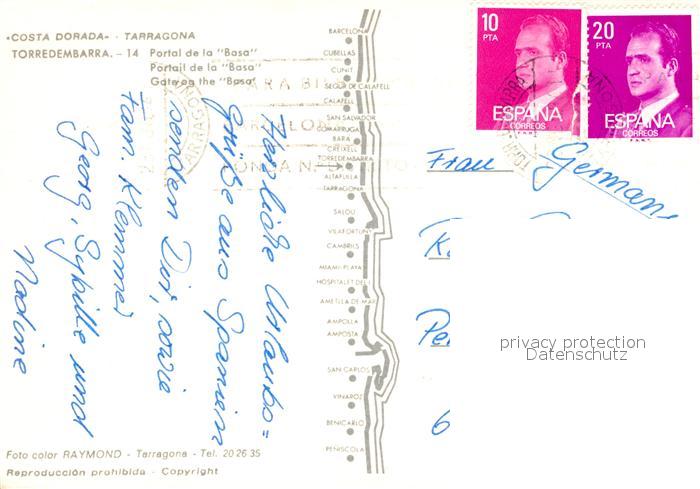 «COSTA DORADA» - TARRAGONA
TORREDEMBARRA. - 14 Portal de la "Basa"
Portail de la "Basa"
Gate on the "Basa"
Herzliche Urlaubs=
grüße aus Spanien
senden Dir, sowie
Fam. Klemme)
Georg, Sybille und
Nadine
Foto color RAYMOND - Tarragona - Tel. 20 26 35
Reproducción prohibida - Copyright
BARCELONA
CUBELLAS
CUNIT
SEGUR DE CALAFELL
CALAFELL
SAN SALVADOR
COMARRUGA
BARA
CREIXELL
TORREDEMBARRA
ALTAFULLA
TARRAGONA
SALOU
VILAFORTUNY
CAMBRILS
MIAMI-PLAYA
HOSPITALET DEL I.
AMETLLA DE MAR
AMPOLLA
AMPOSTA
SAN CARLOS
VINAROZ
BENICARLO
PEÑISCOLA
10
PTA
ESPAÑA
CORREOS
20
PTA
ESPAÑA
CORREOS
Frau
Germany
K
Pe
6
privacy protection
Datenschutz